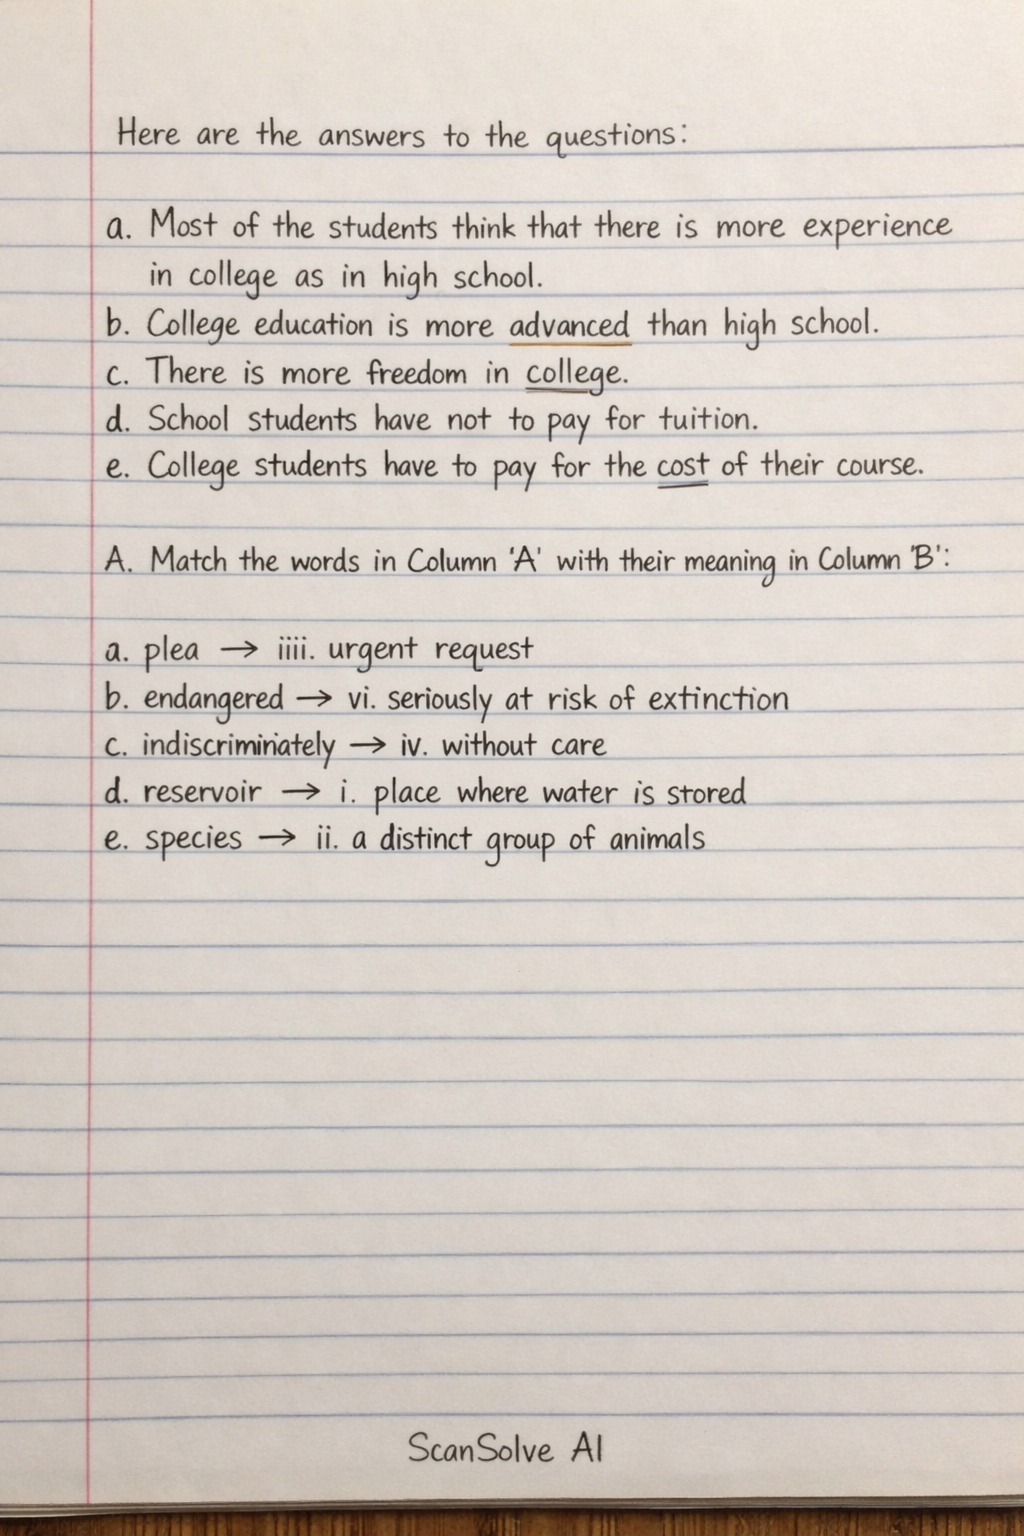 Here are the answers to the questions:
a. Most of the students think that there is more experience
in college as in high school.
b. College education is more advanced than high school.
c. There is more freedom in college.
d. School students have not to pay for tuition.
e. College students have to pay for the cost of their course.
A. Match the words in Column 'A' with their meaning in Column 'B':
a. plea → iiii. urgent request
b. endangered → vi. seriously at risk of extinction
c. indiscriminately → iv. without care
d. reservoir → i. place where water is stored
e. species → ii. a distinct group of animals
ScanSolve AI